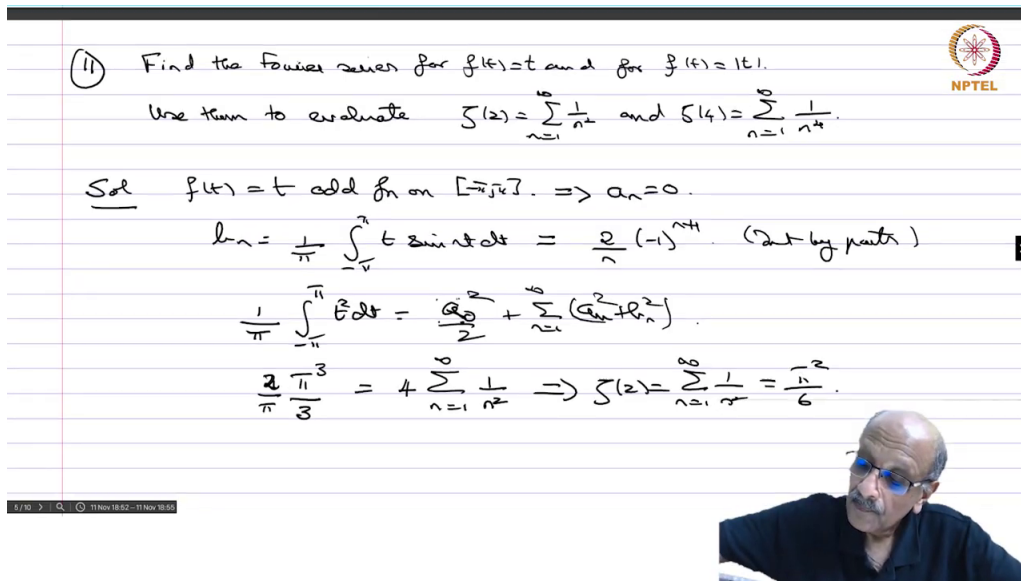 NPTEL
(11) Find the Fourier series for f(t)=t and for f(t)=|t|.
Use them to evaluate ζ(2) = ∑_{n=1}^{∞} 1/n² and ζ(4) = ∑_{n=1}^{∞} 1/n⁴.
Sol f(t) = t odd fn on [-π,π]. ⟹ a_n = 0.
b_n = 1/π ∫_{-π}^{π} t sin nt dt = 2/n (-1)^{n+1}. (Int by parts)
1/π ∫_{-π}^{π} t² dt = a_0²/2 + ∑_{n=1}^{∞} (a_n² + b_n²).
2/π π³/3 = 4 ∑_{n=1}^{∞} 1/n² ⟹ ζ(2) = ∑_{n=1}^{∞} 1/n² = π²/6.
5 / 10 11 Nov 18:52 – 11 Nov 18:55